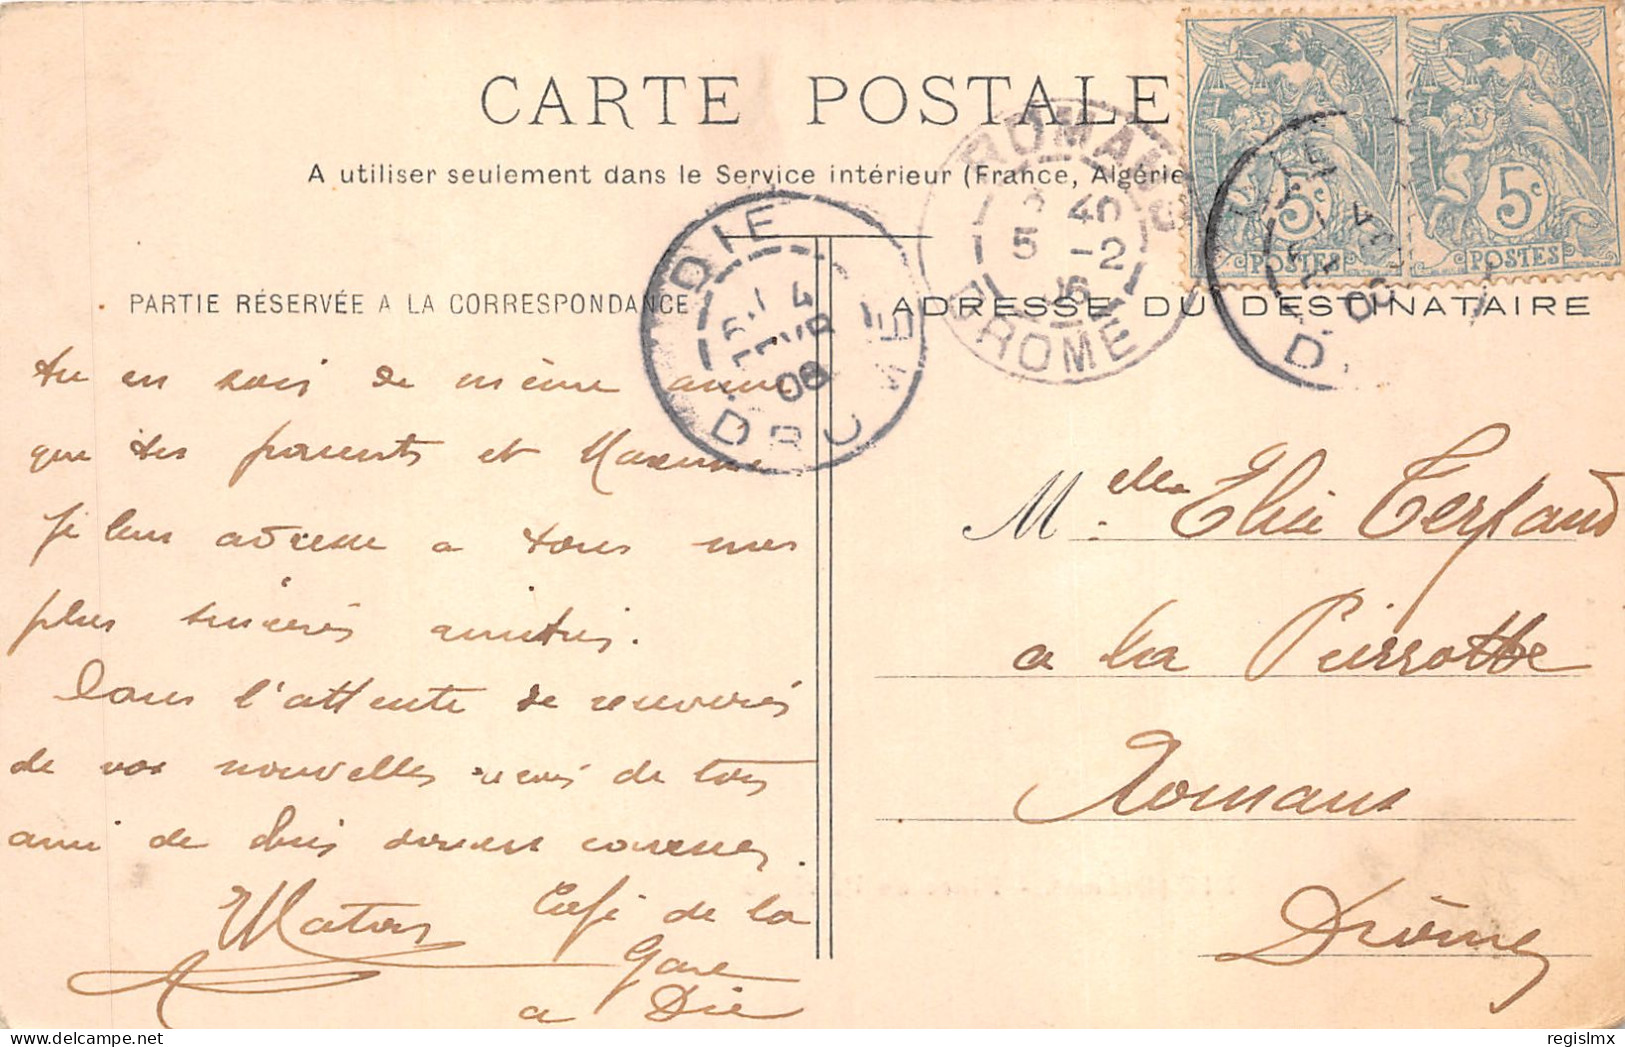 CARTE POSTALE
A utiliser seulement dans le Service intérieur (France, Algérie
5c 5c
POSTES POSTES
ROMANS
40
5 -2
06
DROME
DIE
4
AVR
06
DROME
DIE
PARTIE RÉSERVÉE A LA CORRESPONDANCE
tu en sois de même ainsi
que tes parents et Maxime
je leur adresse a tous mes
plus sincères amitiés.
Dans l'attente de
de vos nouvelles de ton
ami de
Café de la
Gare
a Die
ADRESSE DU DESTINATAIRE
Melle Elise
a la Pierrotte
Romans
Drôme
regislmx